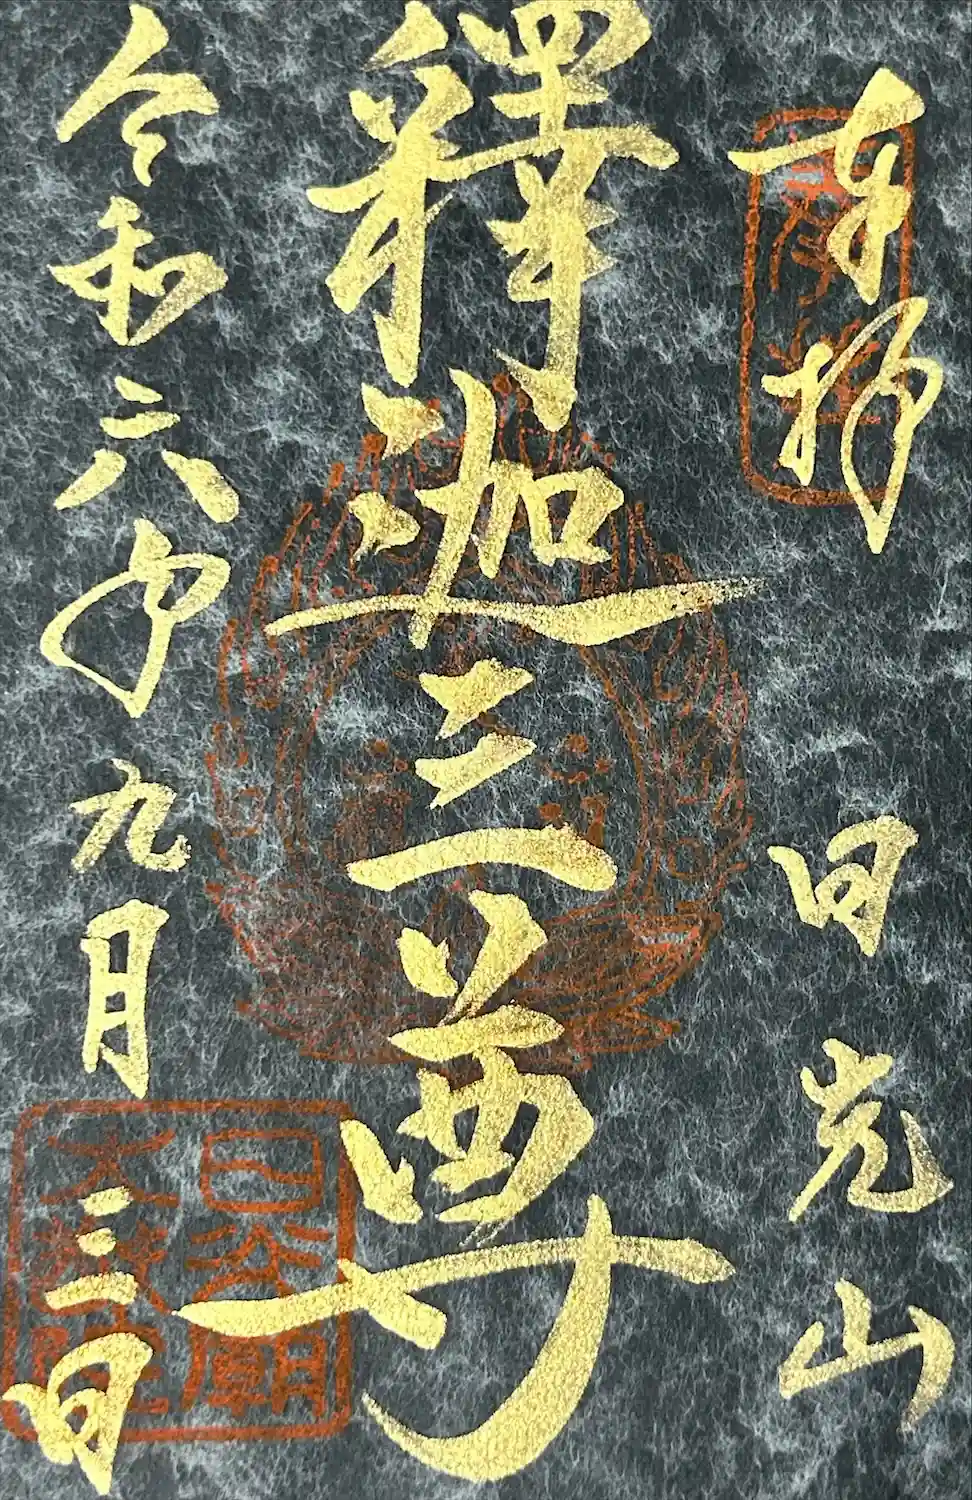 奉拝 日光山
釋迦三尊
令和六年九月三日
大猷院